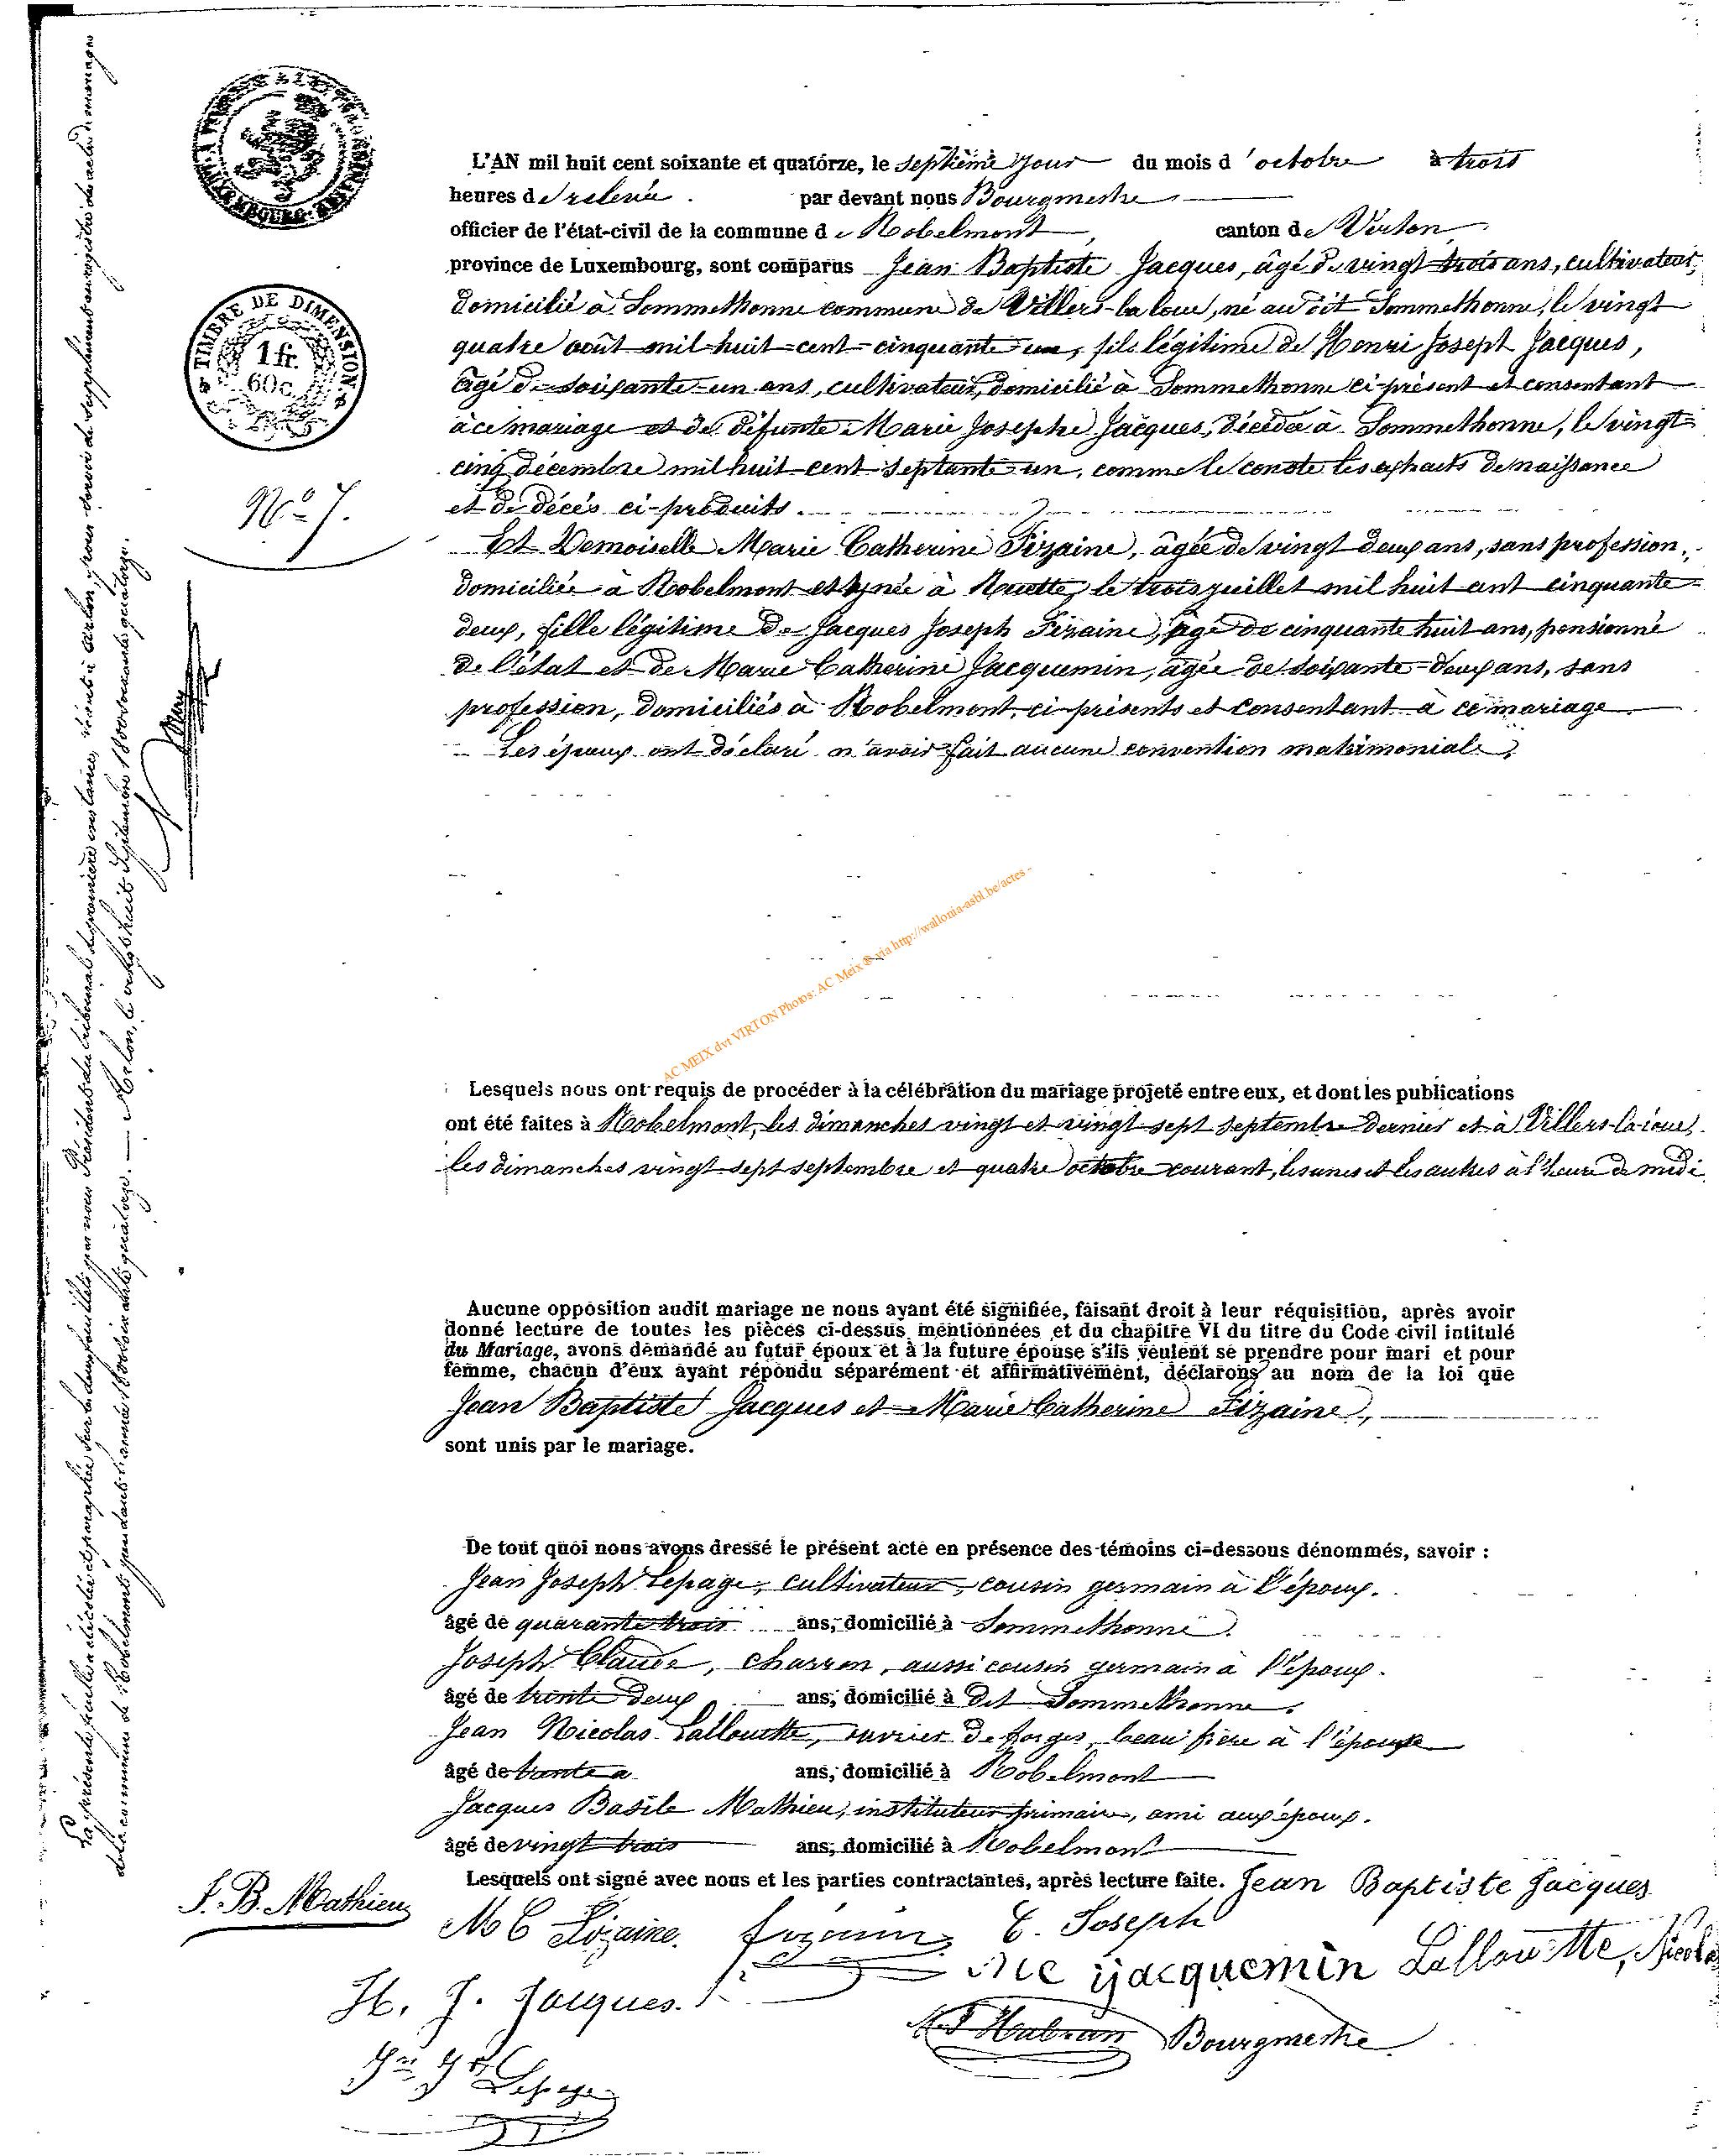 L'AN mil huit cent soixante et quatorze, le septième jour du mois d'octobre à trois
heures de relevée. par devant nous Bourgmestre
officier de l'état-civil de la commune de Robelmont, canton de Virton,
province de Luxembourg, sont comparus Jean Baptiste Jacques, âgé de vingt trois ans, cultivateur,
domicilié à Sommethonne commune de Villers-la loue, né au dit Sommethonne, le vingt
quatre août mil huit cent cinquante un, fils légitime de Henri Joseph Jacques,
âgé de soixante-un ans, cultivateur, domicilié à Sommethonne ci-présent et consentant
à ce mariage et de défunte Marie Josephe Jacques, décédée à Sommethonne, le vingt
cinq décembre mil huit cent septante un, comme le conste les extraits de naissance
et de décès ci-produits.
Et Demoiselle Marie Catherine Fizaine, âgée de vingt deux ans, sans profession,
domiciliée à Robelmont et née à Ruette, le trois juillet mil huit cent cinquante
deux, fille légitime de Jacques Joseph Fizaine, âgé de cinquante huit ans, pensionné
de l'état et de Marie Catherine Jacquemin, âgée de soixante-deux ans, sans
profession, domiciliés à Robelmont, ci-présents et consentant à ce mariage.
Les époux ont déclaré n'avoir fait aucune convention matrimoniale,
AC MEIX dvt VIRTON Photos: AC Meix ® via http://wallonia-asbl.be/actes -
Lesquels nous ont requis de procéder à la célébration du mariage projeté entre eux, et dont les publications
ont été faites à Robelmont, les dimanches vingt et vingt-sept septembre dernier et à Villers-la-loue,
les dimanches vingt-sept septembre et quatre octobre courant, les unes et les autres à l'heure de midi
Aucune opposition audit mariage ne nous ayant été signifiée, faisant droit à leur réquisition, après avoir
donné lecture de toutes les pièces ci-dessus mentionnées et du chapitre VI du titre du Code civil intitulé
du Mariage, avons demandé au futur époux et à la future épouse s'ils veulent se prendre pour mari et pour
femme, chacun d'eux ayant répondu séparément et affirmativement, déclarons au nom de la loi que
Jean Baptiste Jacques et Marie Catherine Fizaine,
sont unis par le mariage.
De tout quoi nous avons dressé le présent acte en présence des témoins ci-dessous dénommés, savoir :
Jean Joseph Lepage, cultivateur, cousin germain à l'époux.
âgé de quarante trois ans, domicilié à Sommethonne.
Joseph Claude, charron, aussi cousin germain à l'époux.
âgé de trente deux ans, domicilié à dit Sommethonne.
Jean Nicolas Lallouette, ouvrier de forges, beau frère à l'épouse
âgé de trente ans, domicilié à Robelmont
Jacques Basile Mathieu, instituteur primaire, ami aux époux.
âgé de vingt trois ans, domicilié à Robelmont
Lesquels ont signé avec nous et les parties contractantes, après lecture faite. Jean Baptiste Jacques
J. B. Mathieu
M C Fizaine. fizaine C. Joseph
MC jjacquemin Lallouette, Nicolas
H. J. Jacques.
Hubran Bourgmestre
Jn Jh Lepage
TIMBRE DE DIMENSION
1 fr.
60c
No 7.
La présente feuille a été cotée et paraphée sur les deux feuillets par nous Président du tribunal de première instance, séant à Arlon, pour servir de supplément au registre des actes de mariages
de la commune de Robelmont pendant l'année 1800 soixante quatorze. — Arlon, le vingt huit septembre 1800 soixante quatorze.